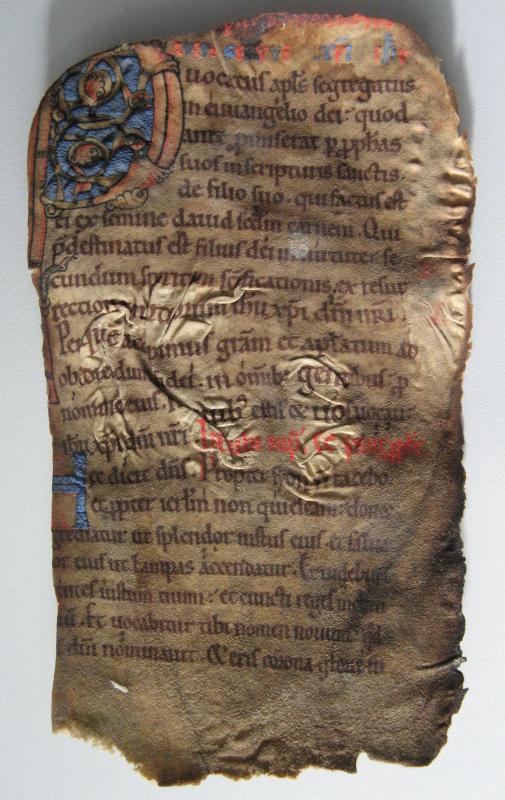 uocatus aptłs segregatus
in euuangelio dei: quod
ante promiserat p pphas
suos in scripturis sanctis.
de filio suo. qui factus est
ei ex semine dauid scdm carnem. Qui
pdestinatus est filius dei in uirtute: se
cundum spiritum scificationis. ex resur
rectione mortuorum ihu xpi dñi nri.
Per que accepimus gram et aplatum ad
obediendum fidei. in omnib gentibus. p
nomine eius. In quib estis & uos uocati
ihu xpi dñi nri
ec dicit dns. Propter Syon non tacebo.
et ppter ierlm non quiescam. donec
grediatur ut splendor iustus eius et salua
or eius ut lampas accendatur. Et uidebunt
gentes iustum tuum: et cuncti reges inclitu
uu. Et uocabitur tibi nomen nouum: qd
dñi nominauit. Et eris corona glorie in